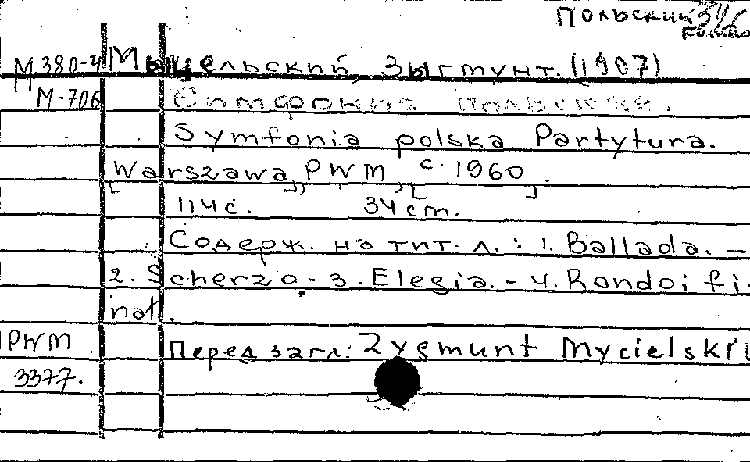 Польский
М 380-4 Мыцельский, Зыгмунт. (1907)
М-706 Симфония польская.
Symfonia polska Partytura.
[Warszawa], PWM, [c. 1960].
114 с. 34 cm.
Содерж. на тит. л.: 1. Ballada. –
2. Scherzo - 3. Elegia. - 4. Rondo i fi-
nał.
PWM Перед загл.: Zygmunt Mycielski
3377.